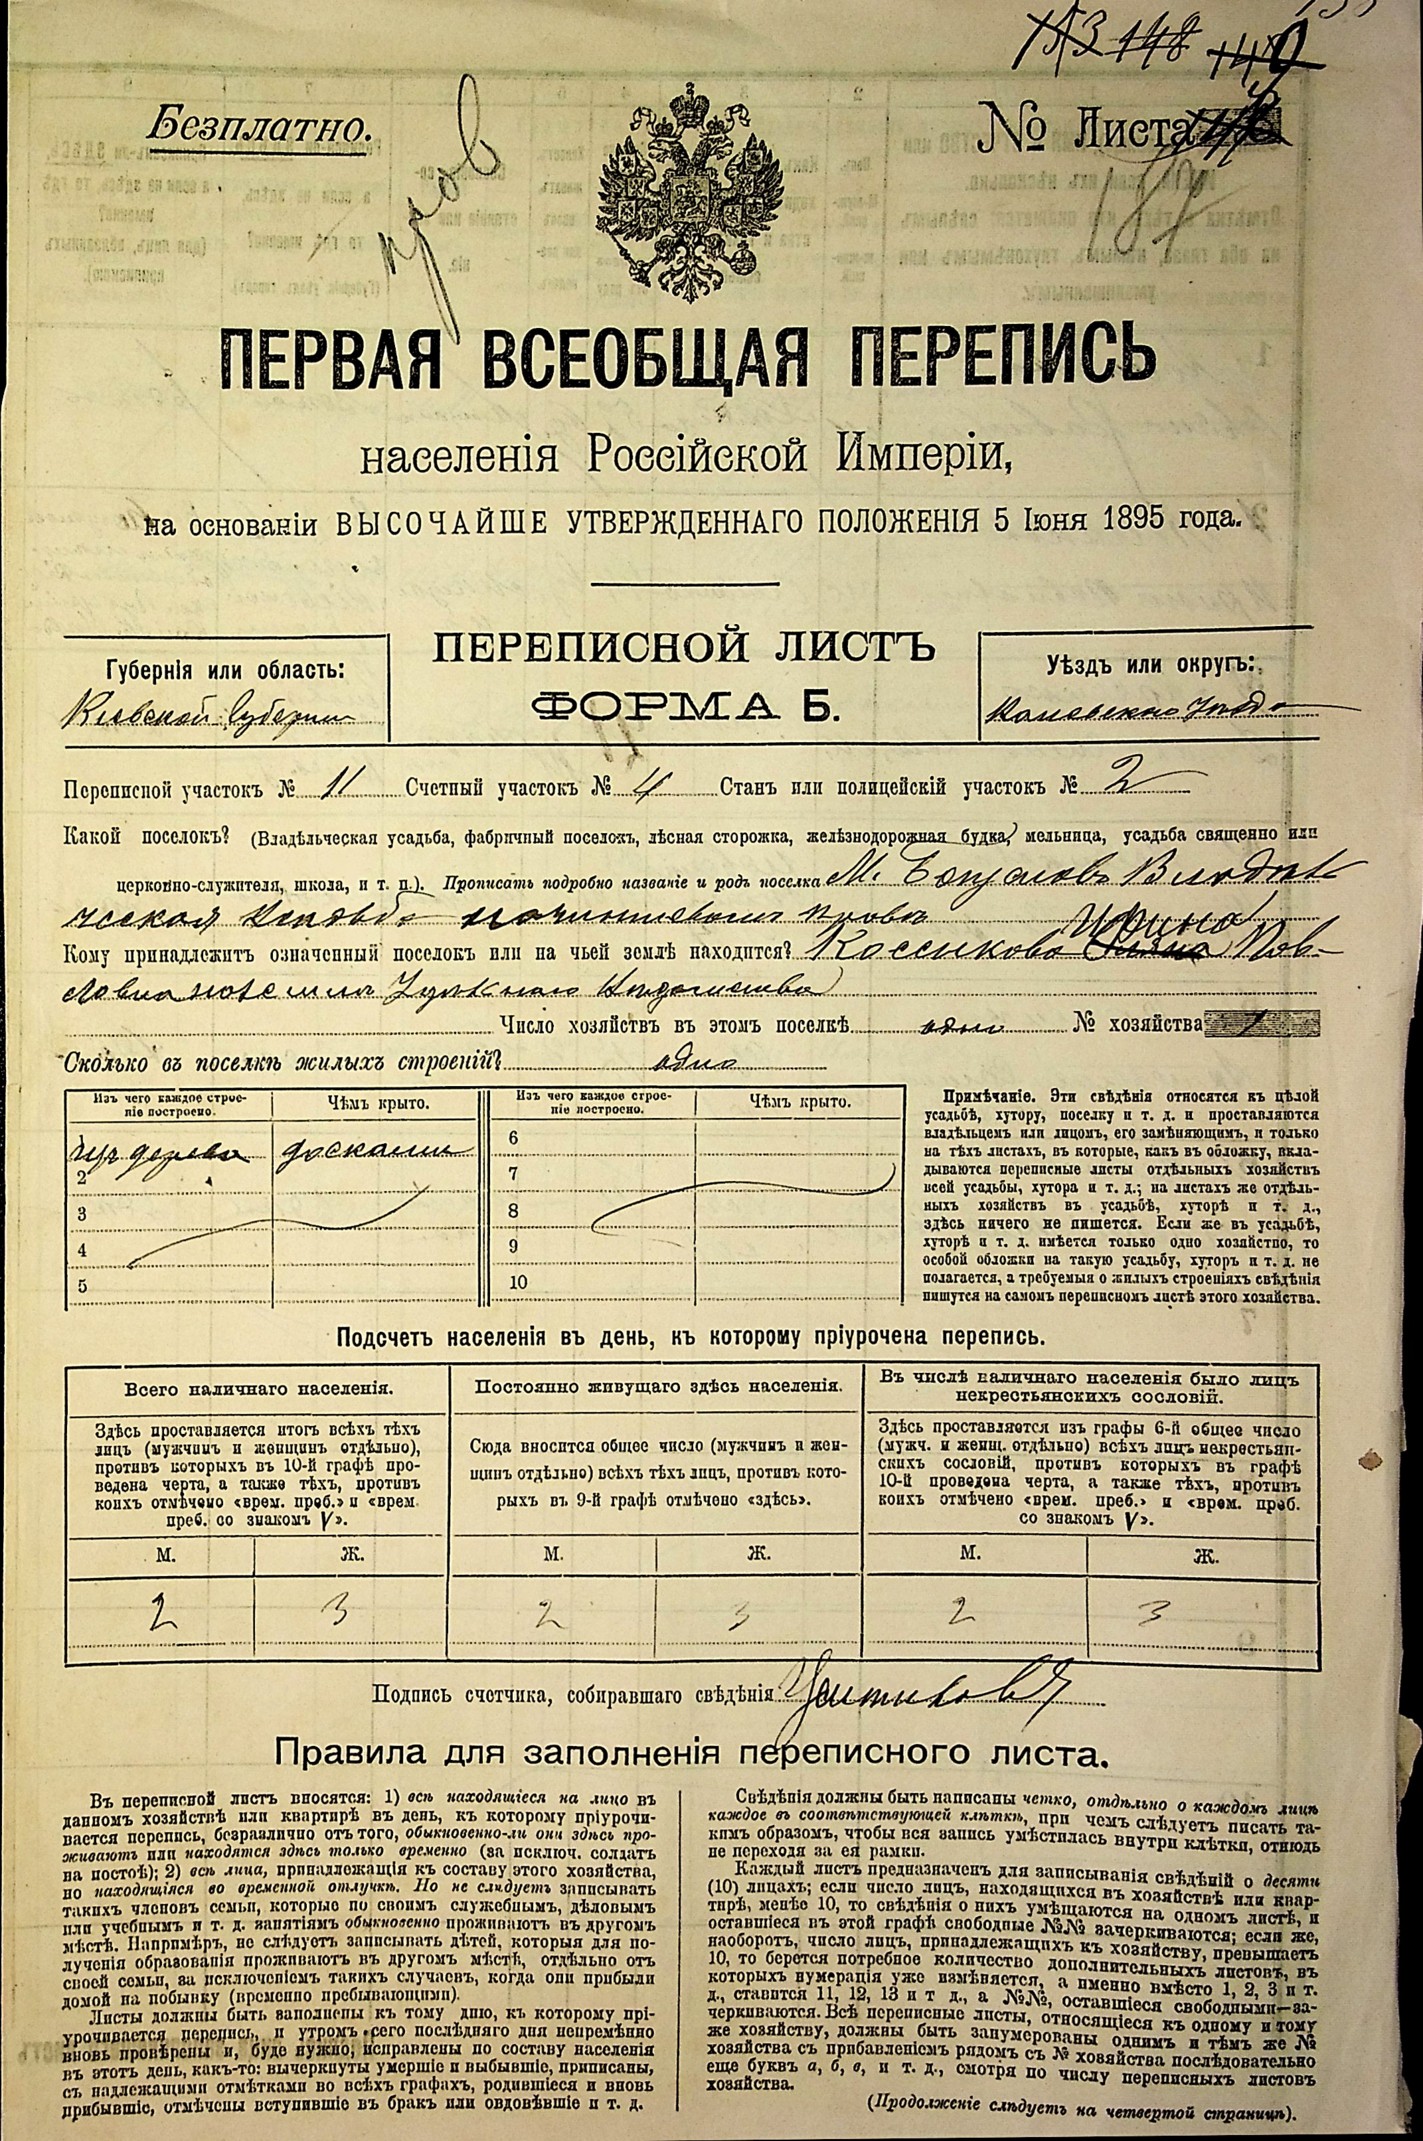 153 148 140
Безплатно.
№ Листа
187
пров
ПЕРВАЯ ВСЕОБЩАЯ ПЕРЕПИСЬ
населенія Россійской Имперіи,
на основаніи ВЫСОЧАЙШЕ УТВЕРЖДЕННАГО ПОЛОЖЕНІЯ 5 Іюня 1895 года.
ПЕРЕПИСНОЙ ЛИСТЪ
ФОРМА Б.
Губернія или область:
Кіевской Губерніи
Уѣздъ или округъ:
Каневскаго Уѣзда
Переписной участокъ № 11 Счетный участокъ № 4 Станъ или полицейскій участокъ № 2
Какой поселокъ? (Владѣльческая усадьба, фабричный поселокъ, лѣсная сторожка, желѣзнодорожная будка, мельница, усадьба священно или
церковно-служителя, школа, и т. п.). Прописать подробно названіе и родъ поселка М. Богуславъ Владѣль
ческая Усадьба
Кому принадлежитъ означенный поселокъ или на чьей землѣ находится? Косикова Ирина Пав-
ловна на землѣ Удѣльнаго Вѣдомства
Число хозяйствъ въ этомъ поселкѣ одно № хозяйства 1
Сколько въ поселкѣ жилыхъ строеній? одно
Изъ чего каждое строе-
ніе построено.
Чѣмъ крыто.
Изъ чего каждое строе-
ніе построено.
Чѣмъ крыто.
изъ дерева досками
2
3
4
5
6
7
8
9
10
Примѣчаніе. Эти свѣдѣнія относятся къ цѣлой
усадьбѣ, хутору, поселку и т. д. и проставляются
владѣльцемъ или лицомъ, его замѣняющимъ, и только
на тѣхъ листахъ, въ которые, какъ въ обложку, вкла-
дываются переписные листы отдѣльныхъ хозяйствъ
всей усадьбы, хутора и т. д.; на листахъ же отдѣль-
ныхъ хозяйствъ въ усадьбѣ, хуторѣ и т. д.,
здѣсь ничего не пишется. Если же въ усадьбѣ,
хуторѣ и т. д. имѣется только одно хозяйство, то
особой обложки на такую усадьбу, хуторъ и т. д. не
полагается, а требуемыя о жилыхъ строеніяхъ свѣдѣнія
пишутся на самомъ переписномъ листѣ этого хозяйства.
Подсчетъ населенія въ день, къ которому пріурочена перепись.
Всего наличнаго населенія.
Здѣсь проставляется итогъ всѣхъ тѣхъ
лицъ (мужчинъ и женщинъ отдѣльно),
противъ которыхъ въ 10-й графѣ про-
ведена черта, а также тѣхъ, противъ
коихъ отмѣчено «врем. преб.» и «врем.
преб. со знакомъ V».
Постоянно живущаго здѣсь населенія.
Сюда вносится общее число (мужчинъ и жен-
щинъ отдѣльно) всѣхъ тѣхъ лицъ, противъ кото-
рыхъ въ 9-й графѣ отмѣчено «здѣсь».
Въ числѣ наличнаго населенія было лицъ
некрестьянскихъ сословій.
Здѣсь проставляется изъ графы 6-й общее число
(мужч. и женщ. отдѣльно) всѣхъ лицъ некрестьян-
скихъ сословій, противъ которыхъ въ графѣ
10-й проведена черта, а также тѣхъ, противъ
коихъ отмѣчено «врем. преб.» и «врем. преб.
со знакомъ V».
М. Ж. М. Ж. М. Ж.
2 3 2 3 2 3
Подпись счетчика, собиравшаго свѣдѣнія
Правила для заполненія переписного листа.
Въ переписной листъ вносятся: 1) всѣ находящіеся на лицо въ
данномъ хозяйствѣ или квартирѣ въ день, къ которому пріурочи-
вается перепись, безразлично отъ того, обыкновенно-ли они здѣсь про-
живаютъ или находятся здѣсь только временно (за исключ. солдатъ
на постоѣ); 2) всѣ лица, принадлежащія къ составу этого хозяйства,
но находящіяся во временной отлучкѣ. Но не слѣдуетъ записывать
такихъ членовъ семьи, которые по своимъ служебнымъ, дѣловымъ
или учебнымъ и т. д. занятіямъ обыкновенно проживаютъ въ другомъ
мѣстѣ. Напримѣръ, не слѣдуетъ записывать дѣтей, которыя для по-
лученія образованія проживаютъ въ другомъ мѣстѣ, отдѣльно отъ
своей семьи, за исключеніемъ такихъ случаевъ, когда они прибыли
домой на побывку (временно пребывающими).
Листы должны быть заполнены къ тому дню, къ которому прі-
урочивается перепись, и утромъ сего послѣдняго дня непремѣнно
вновь провѣрены и, буде нужно, исправлены по составу населенія
въ этотъ день, какъ-то: вычеркнуты умершіе и выбывшіе, приписаны,
съ надлежащими отмѣтками во всѣхъ графахъ, родившіеся и вновь
прибывшіе, отмѣчены вступившіе въ бракъ или овдовѣвшіе и т. д.
Свѣдѣнія должны быть написаны четко, отдѣльно о каждомъ лицѣ
каждое въ соотвѣтствующей клѣткѣ, при чемъ слѣдуетъ писать та-
кимъ образомъ, чтобы вся запись умѣстилась внутри клѣтки, отнюдь
не переходя за ея рамки.
Каждый листъ предназначенъ для записыванія свѣдѣній о десяти
(10) лицахъ; если число лицъ, находящихся въ хозяйствѣ или квар-
тирѣ, менѣе 10, то свѣдѣнія о нихъ умѣщаются на одномъ листѣ, и
оставшіеся въ этой графѣ свободные №№ зачеркиваются; если же,
наоборотъ, число лицъ, принадлежащихъ къ хозяйству, превышаетъ
10, то берется потребное количество дополнительныхъ листовъ, въ
которыхъ нумерація уже измѣняется, а именно вмѣсто 1, 2, 3 и т.
д., ставится 11, 12, 13 и т. д., а №№, оставшіеся свободными—за-
черкиваются. Всѣ переписные листы, относящіеся къ одному и тому
же хозяйству, должны быть занумерованы однимъ и тѣмъ же №
хозяйства съ прибавленіемъ рядомъ съ № хозяйства послѣдовательно
еще буквъ а, б, в, и т. д., смотря по числу переписныхъ листовъ
хозяйства.
(Продолженіе слѣдуетъ на четвертой страницѣ).